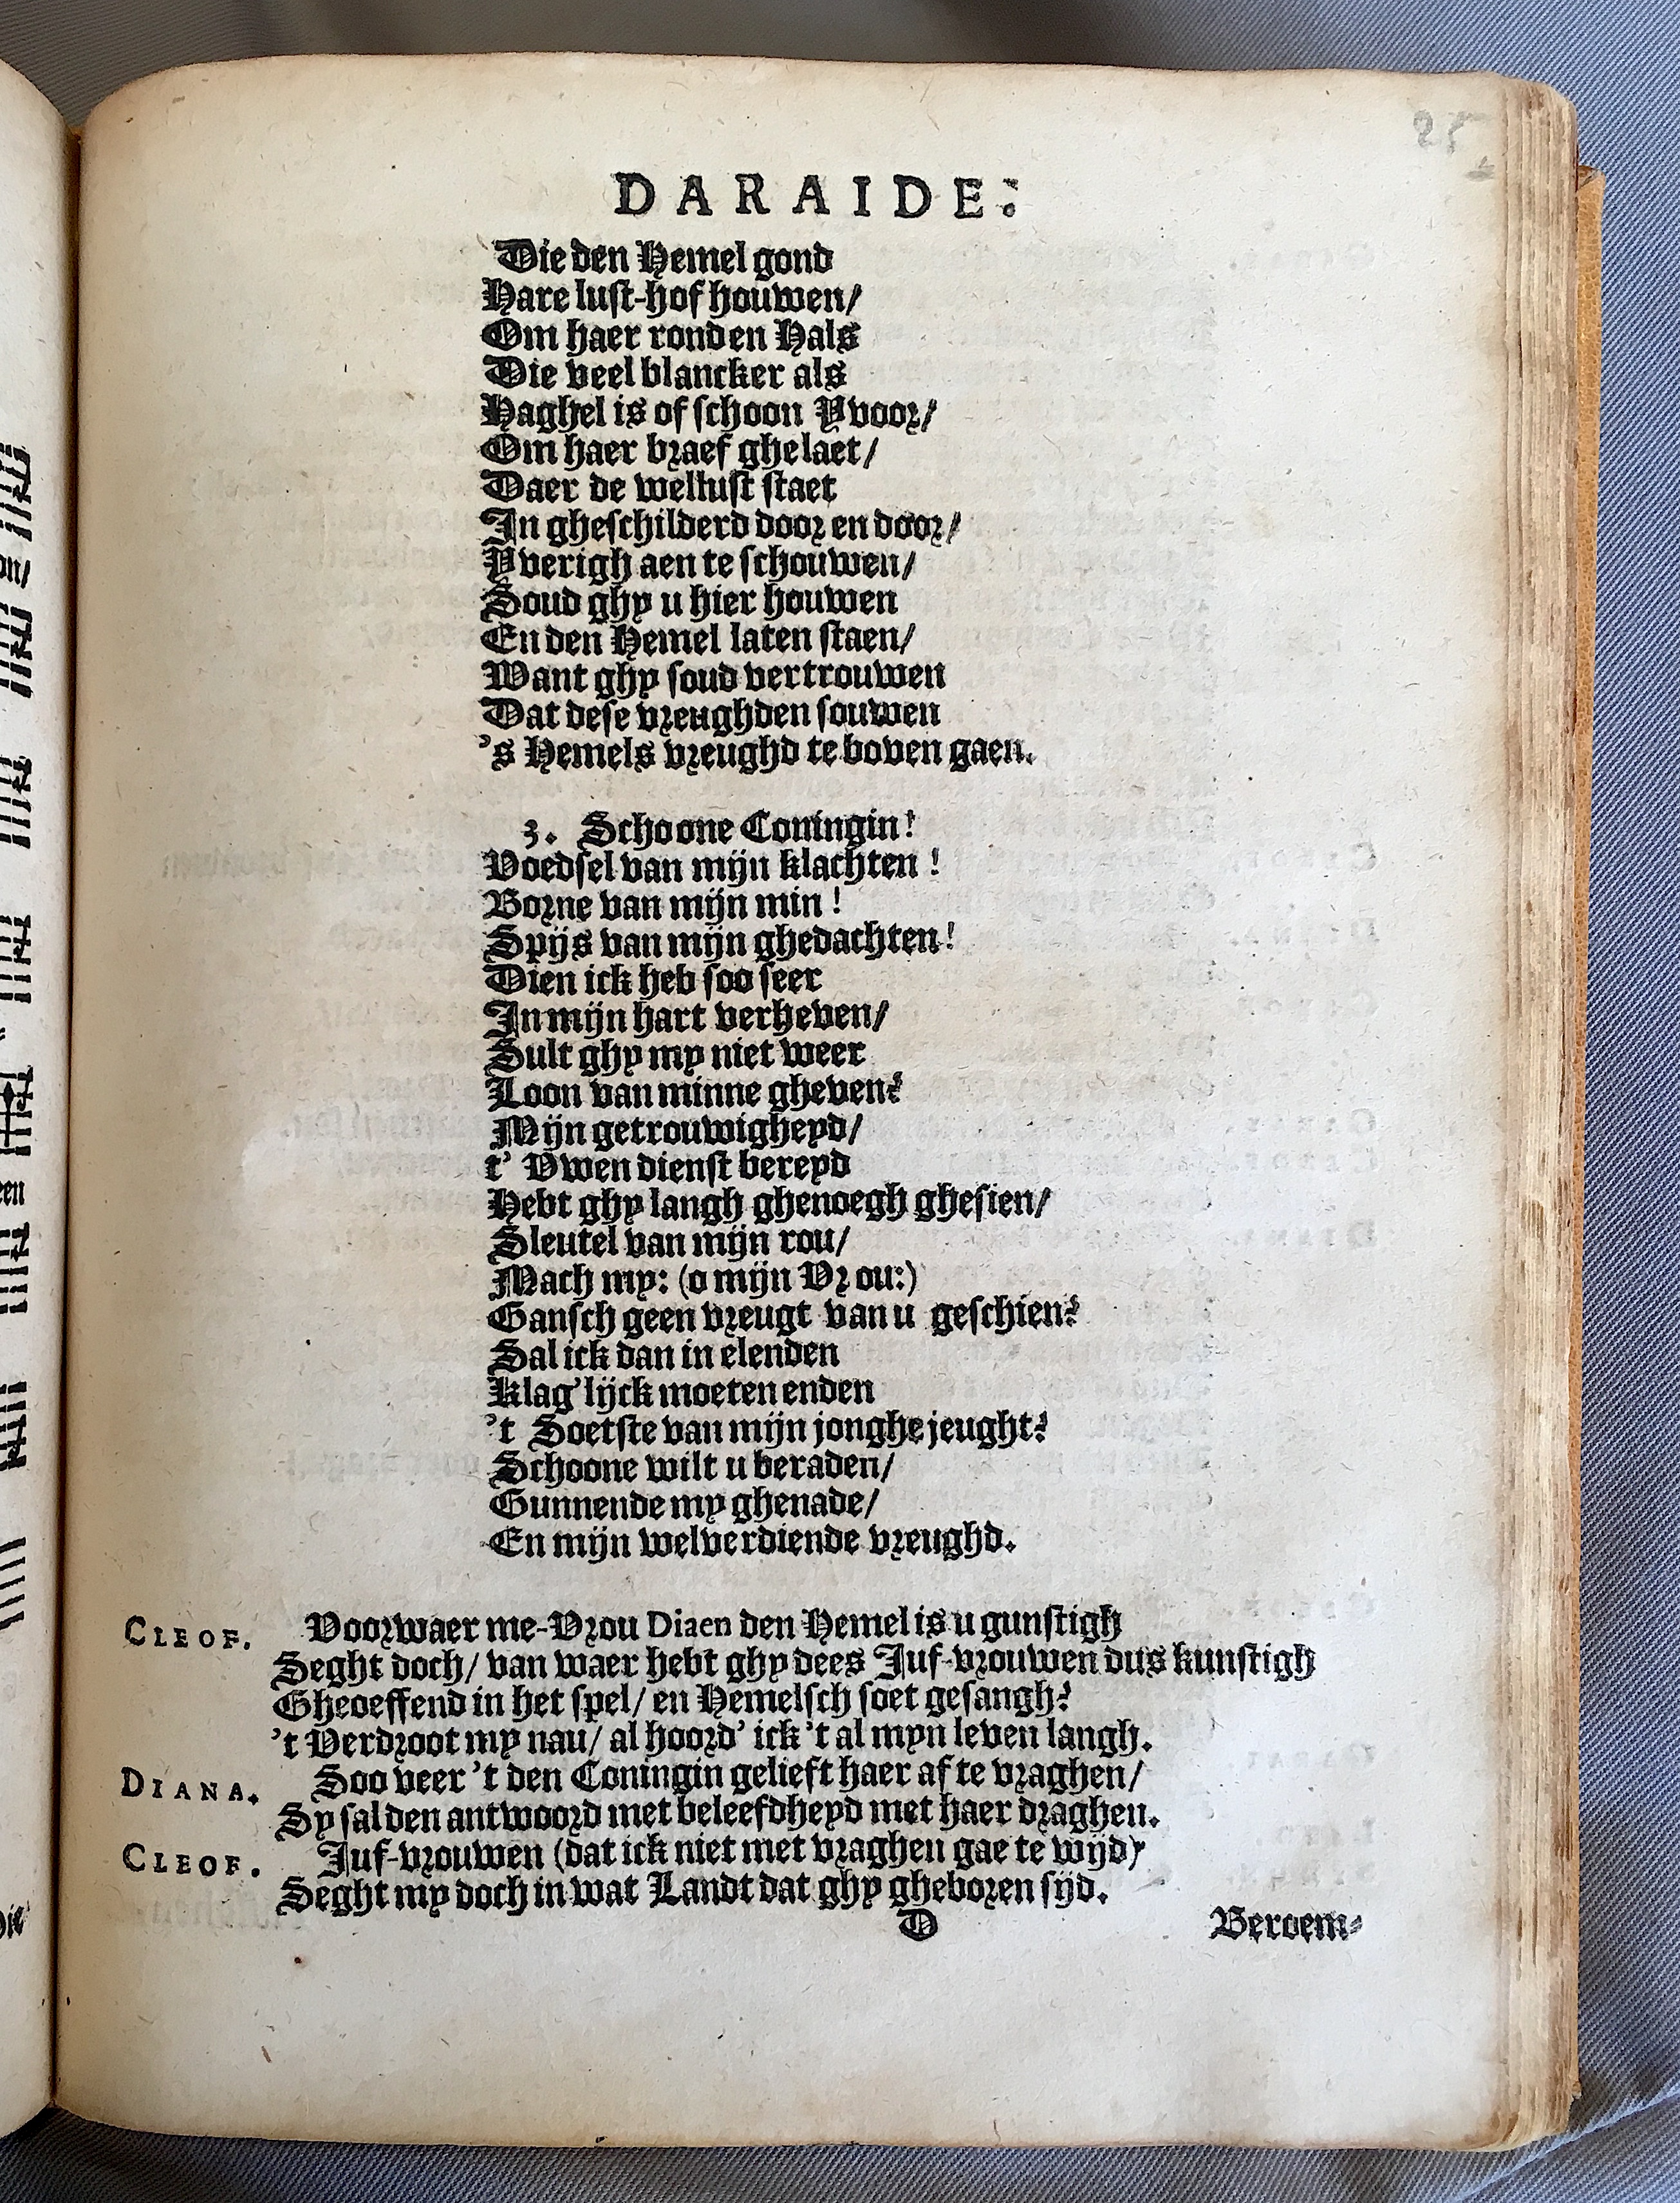 25
DARAIDE:
Die den Hemel gond
Hare lust-hof houwen/
Om haer ronden Hals
Die veel blancker als
Haghel is of schoon Yvoor/
Om haer braef ghelaet/
Daer de wellust staet
In gheschilderd door en door/
Yverigh aen te schouwen/
Soud ghy u hier houwen
En den Hemel laten staen/
Want ghy soud vertrouwen
Dat dese vreughden souwen
's Hemels vreughd te boven gaen.
3. Schoone Coningin!
Voedsel van mijn klachten!
Borne van mijn min!
Spijs van mijn ghedachten!
Dien ick heb soo seer
In mijn hart verheven/
Sult ghy my niet weer
Loon van minne gheven?
Mijn getrouwigheyd/
t' Uwen dienst bereyd
Hebt ghy langh ghenoegh ghesien/
Sleutel van mijn rou/
Mach my: (o mijn Vrou:)
Gansch geen vreugt van u geschien?
Sal ick dan in elenden
Klag'lijck moeten enden
't Soetste van mijn jonghe jeught?
Schoone wilt u beraden/
Gunnende my ghenade/
En mijn welverdiende vreughd.
CLEOF. Voorwaer me-Vrou Diaen den Hemel is u gunstigh
Seght doch/ van waer hebt ghy dees Juf-vrouwen dus kunstigh
Gheoeffend in het spel/ en Hemelsch soet gesangh?
't Verdroot my nau/ al hoord' ick 't al myn leven langh.
DIANA. Soo veer 't den Coningin gelieft haer af te vraghen/
Sy sal den antwoord met beleefdheyd met haer draghen.
CLEOF. Juf-vrouwen (dat ick niet met vraghen gae te wijd)
Seght my doch in wat Landt dat ghy gheboren sijd.
D Beroem-